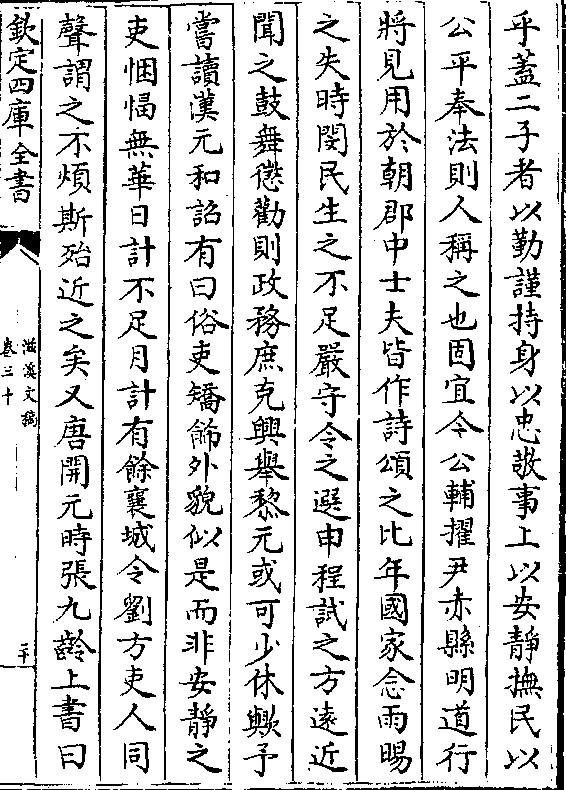 乎蓋二子者以勤謹持身以忠敬事上以安靜撫民以
公平奉法則人稱之也固宜令公輔擢尹赤縣明道行
將見用於朝郡中士夫皆作詩頌之比年國家念雨暘
之失時閔民生之不足嚴守令之選申程試之方遠近
聞之鼓舞懲勸則政務庶克興舉黎元或可少休歟予
嘗讀漢元和詔有曰俗吏矯飾外貌似是而非安靜之
吏悃愊無華日計不足月計有餘襄城令劉方吏人同
聲謂之不煩斯殆近之矣又唐開元時張九齡上書曰
欽定四庫全書
滋溪文稿
卷三十
二十